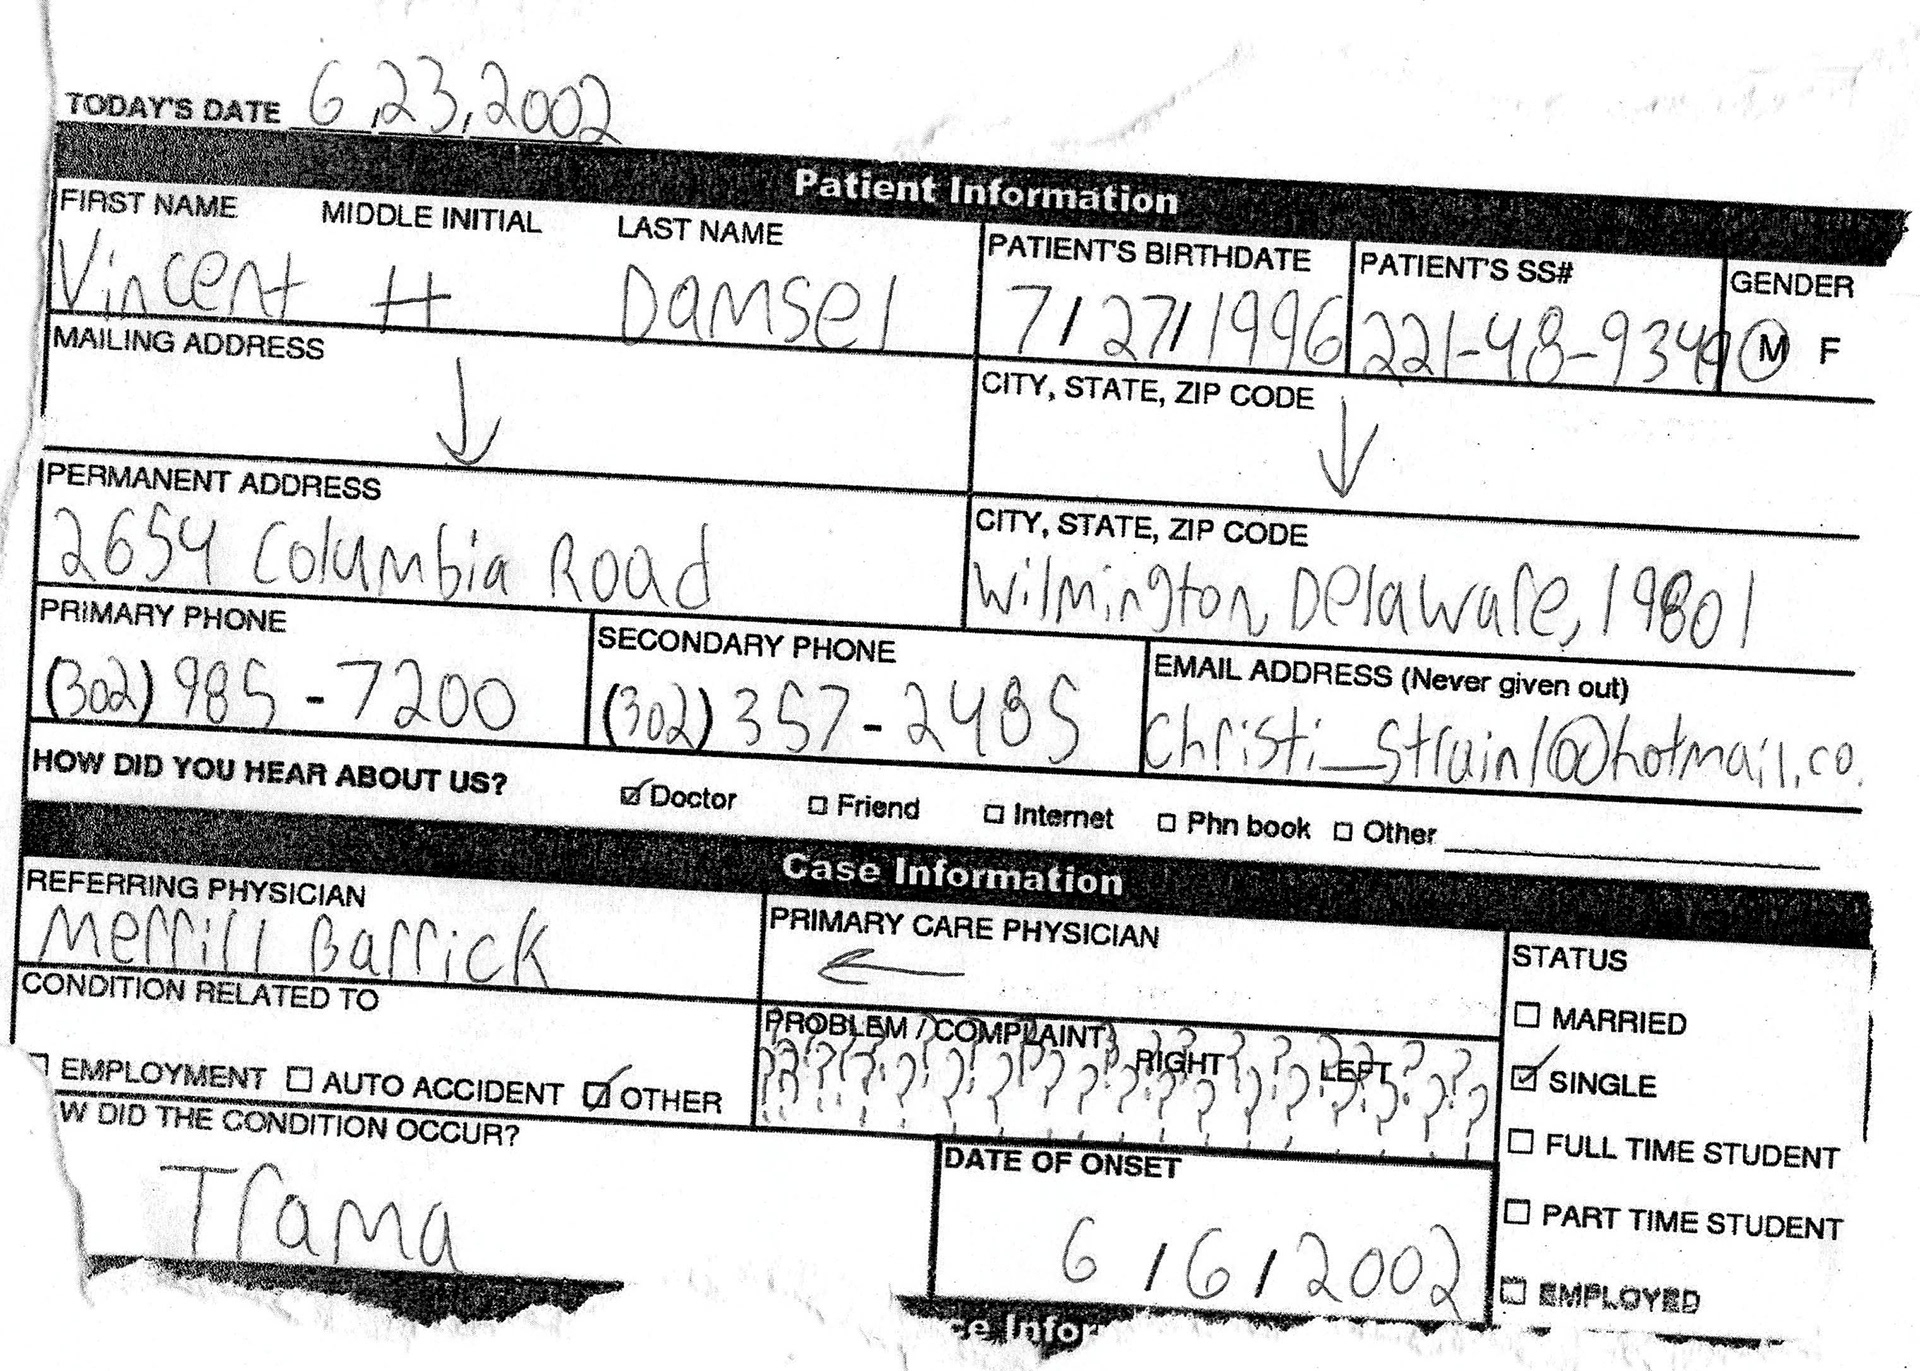 TODAY'S DATE 6,23,2002
Patient Information
FIRST NAME MIDDLE INITIAL LAST NAME PATIENT'S BIRTHDATE PATIENT'S SS# GENDER
Vincent H Damsel 7/27/1996 221-48-9349 M F
MAILING ADDRESS CITY, STATE, ZIP CODE
PERMANENT ADDRESS CITY, STATE, ZIP CODE
2654 Columbia Road Wilmington, Delaware, 19801
PRIMARY PHONE SECONDARY PHONE EMAIL ADDRESS (Never given out)
(302) 985-7200 (302) 357-2485 christi_strain1@hotmail.co.
HOW DID YOU HEAR ABOUT US? Doctor Friend Internet Phn book Other
Case Information
REFERRING PHYSICIAN PRIMARY CARE PHYSICIAN STATUS
Merrill Barrick
CONDITION RELATED TO PROBLEM / COMPLAINT RIGHT LEFT
MARRIED
EMPLOYMENT AUTO ACCIDENT OTHER SINGLE
W DID THE CONDITION OCCUR? DATE OF ONSET FULL TIME STUDENT
Trama 6/6/2002 PART TIME STUDENT
EMPLOYED
ce Infor